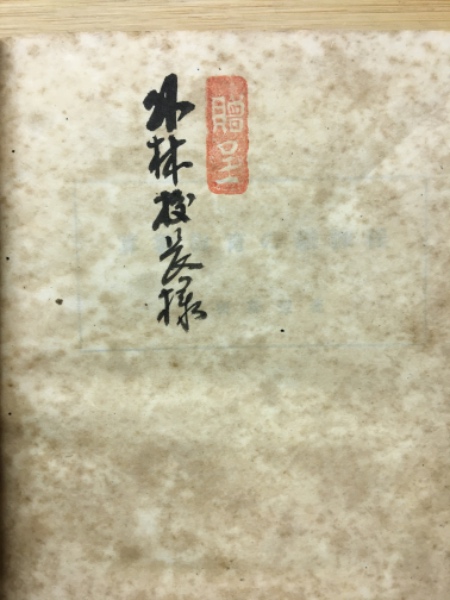 贈呈
林校長様